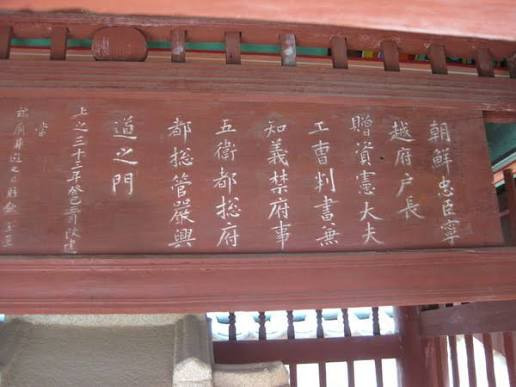 朝鮮忠臣寧
越府戶長
贈資憲大夫
工曹判書兼
知義禁府事
五衛都総府
都総管嚴興
道之門
上之三十三年癸巳改建
當